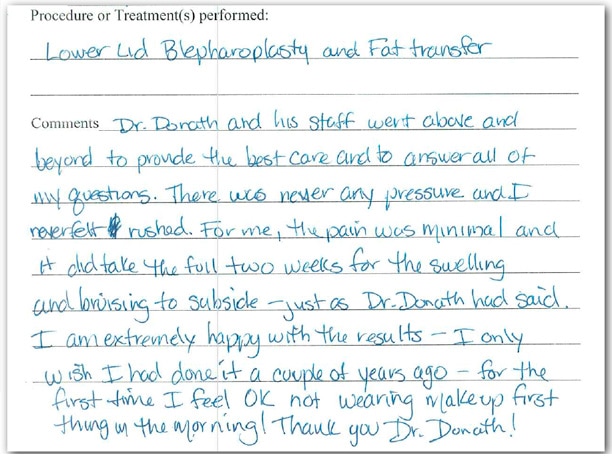 Procedure or Treatment(s) performed:
Lower Lid Blepharoplasty and Fat transfer
Comments Dr. Donath and his staff went above and
beyond to provide the best care and to answer all of
my questions. There was never any pressure and I
never felt rushed. For me, the pain was minimal and
it did take the full two weeks for the swelling
and bruising to subside – just as Dr. Donath had said.
I am extremely happy with the results – I only
wish I had done it a couple of years ago – for the
first time I feel OK not wearing makeup first
thing in the morning! Thank you Dr. Donath!